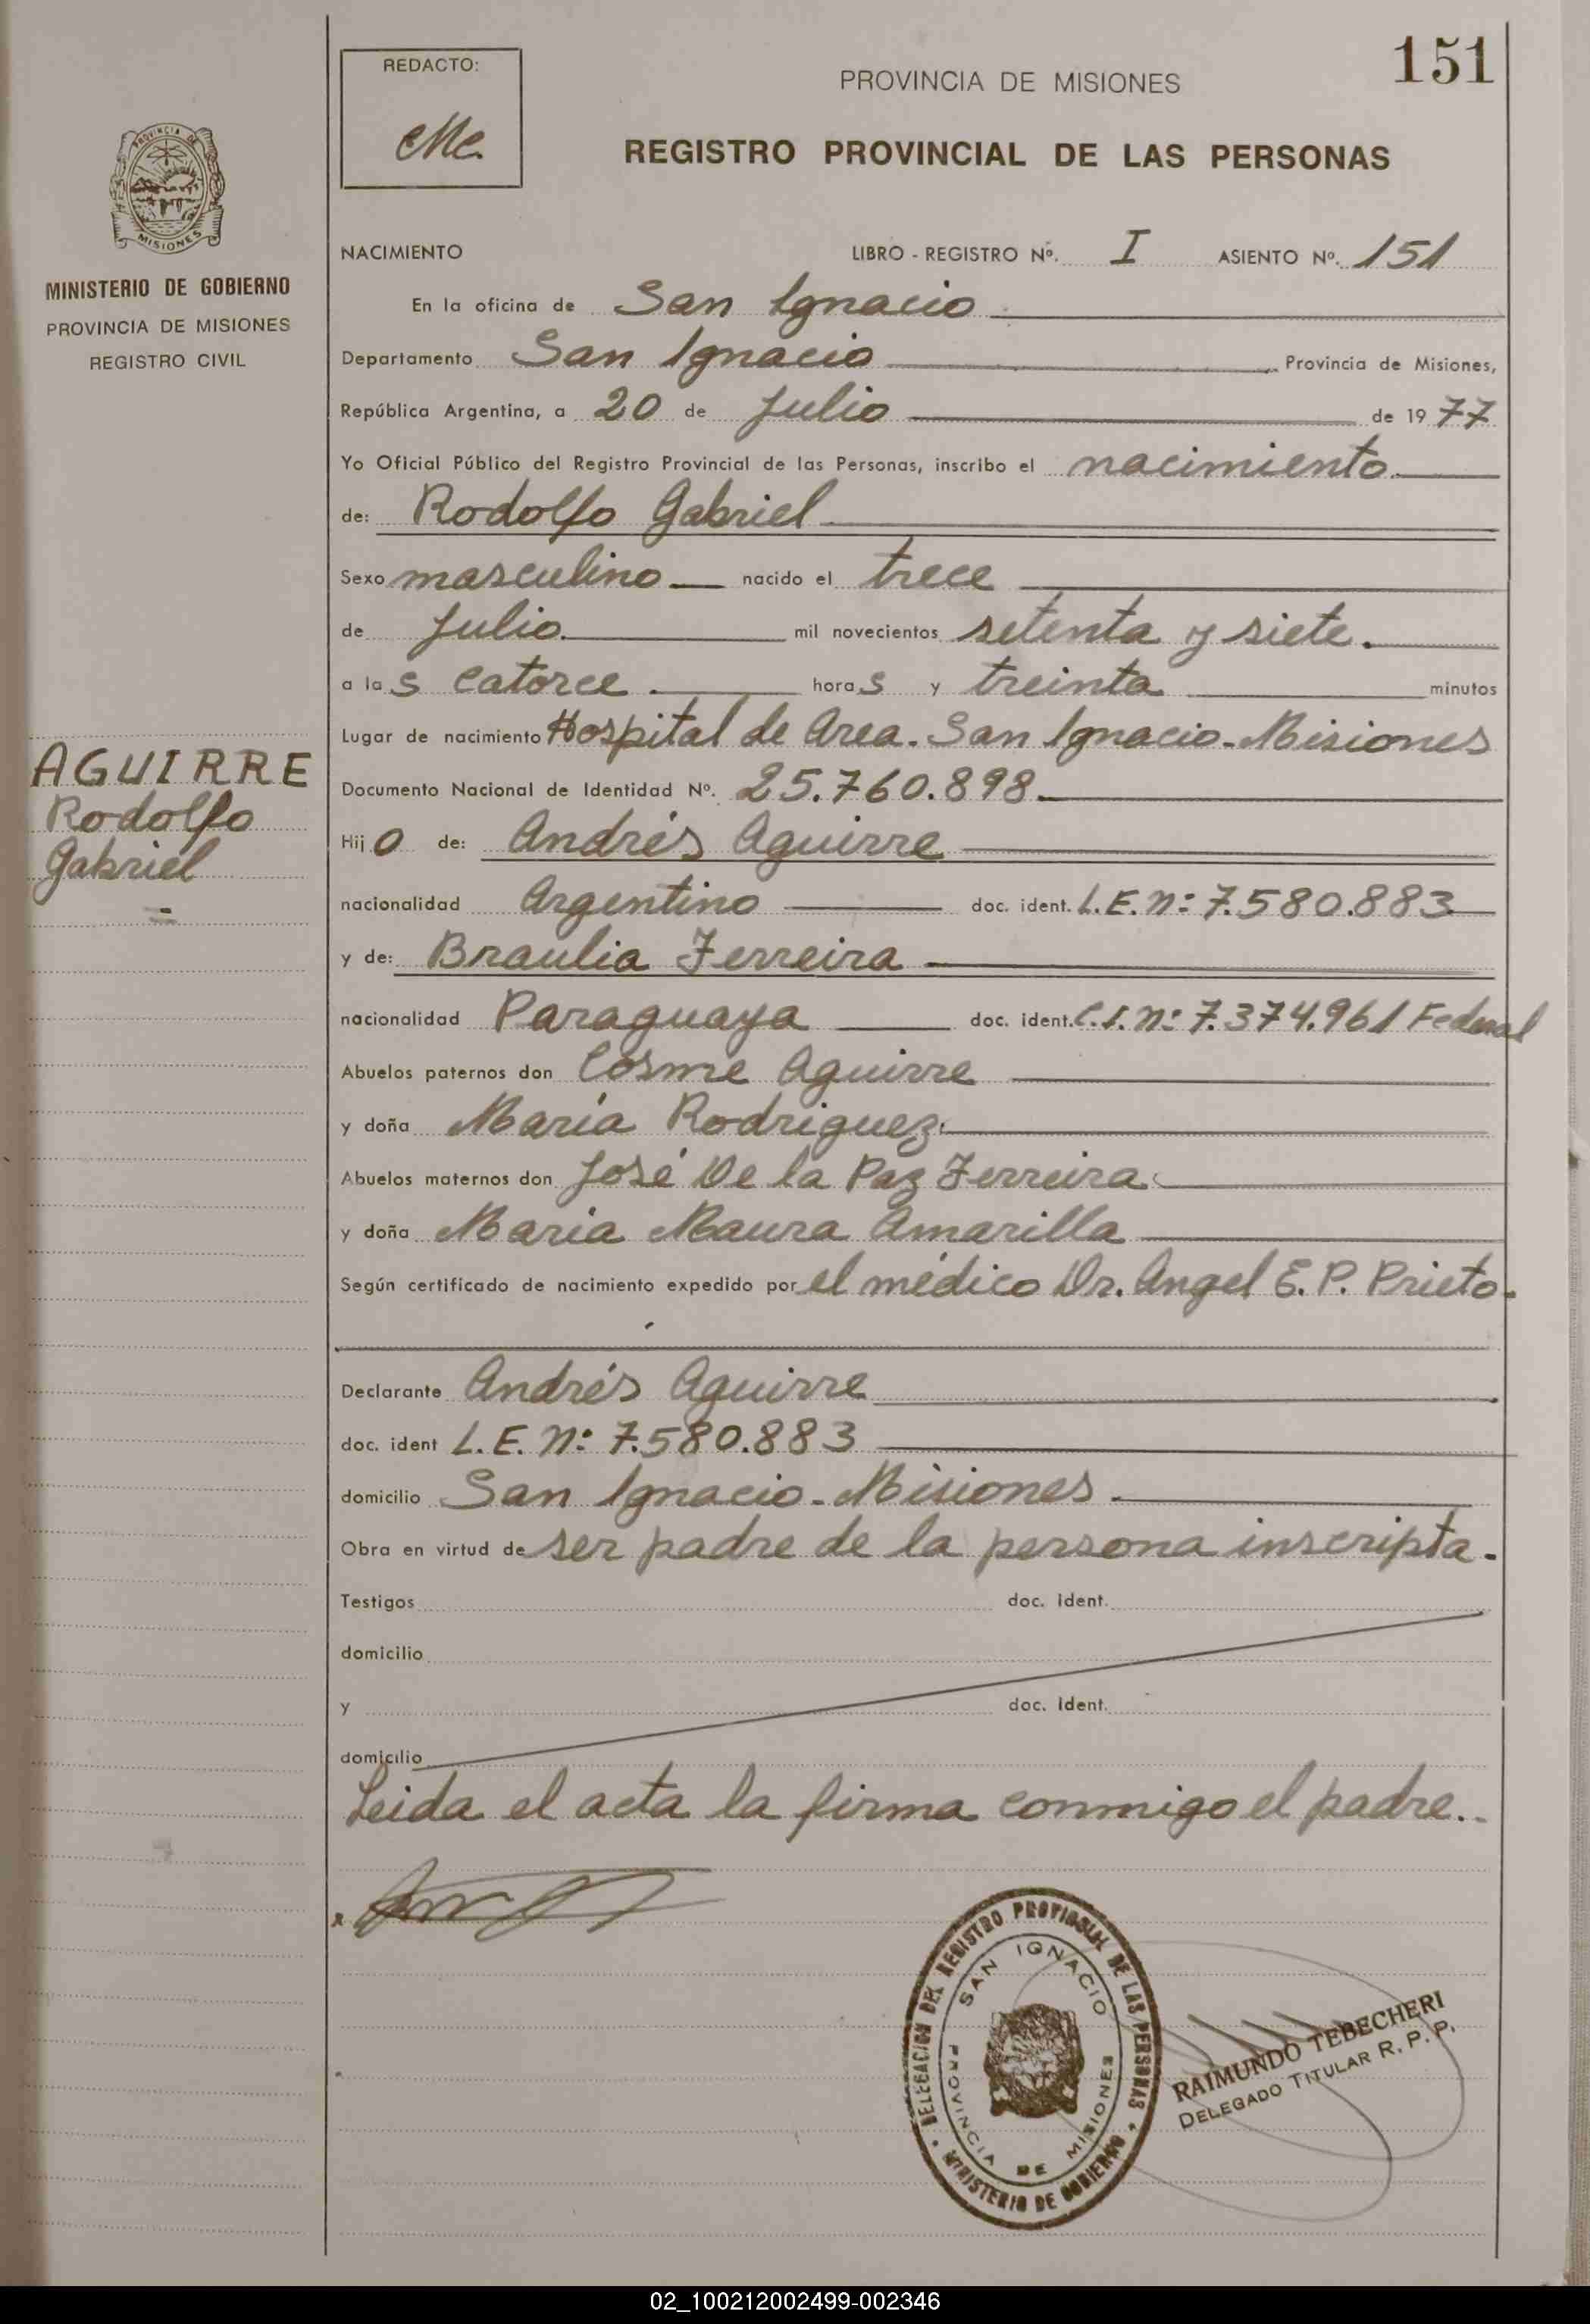 151
REDACTO:
PROVINCIA DE MISIONES
REGISTRO PROVINCIAL DE LAS PERSONAS
PROVINCIA DE
MISIONES
MINISTERIO DE GOBIERNO
PROVINCIA DE MISIONES
REGISTRO CIVIL
AGUIRRE
Rodolfo
Gabriel
NACIMIENTO LIBRO - REGISTRO Nº. I ASIENTO Nº. 151
En la oficina de San Ignacio
Departamento San Ignacio Provincia de Misiones,
República Argentina, a 20 de Julio de 1977
Yo Oficial Público del Registro Provincial de las Personas, inscribo el nacimiento
de: Rodolfo Gabriel
Sexo masculino nacido el trece
de Julio. mil novecientos setenta y siete.
a las catorce. horas y treinta minutos
Lugar de nacimiento Hospital de Area. San Ignacio-Misiones
Documento Nacional de Identidad Nº. 25.760.898.
Hijo de: Andrés Aguirre
nacionalidad Argentino doc. ident. L.E. n: 7.580.883
y de: Braulia Ferreira
nacionalidad Paraguaya doc. ident. C.I. n: 7.374.961 Federal
Abuelos paternos don Cosme Aguirre
y doña María Rodriguez.
Abuelos maternos don José De la Paz Ferreira
y doña María Maura Amarilla
Según certificado de nacimiento expedido por el médico Dr. Angel E. P. Prieto.
Declarante Andrés Aguirre
doc. ident L. E. n: 7.580.883
domicilio San Ignacio-Misiones.
Obra en virtud de ser padre de la persona inscripta.
Testigos doc. ident.
domicilio
y doc. ident.
domicilio
Leida el acta la firma conmigo el padre..
DELEGACION DEL REGISTRO PROVINCIAL DE LAS PERSONAS
SAN IGNACIO
PROVINCIA DE MISIONES
MINISTERIO DE GOBIERNO
RAIMUNDO TEBECHERI
DELEGADO TITULAR R. P. P.
02_100212002499-002346